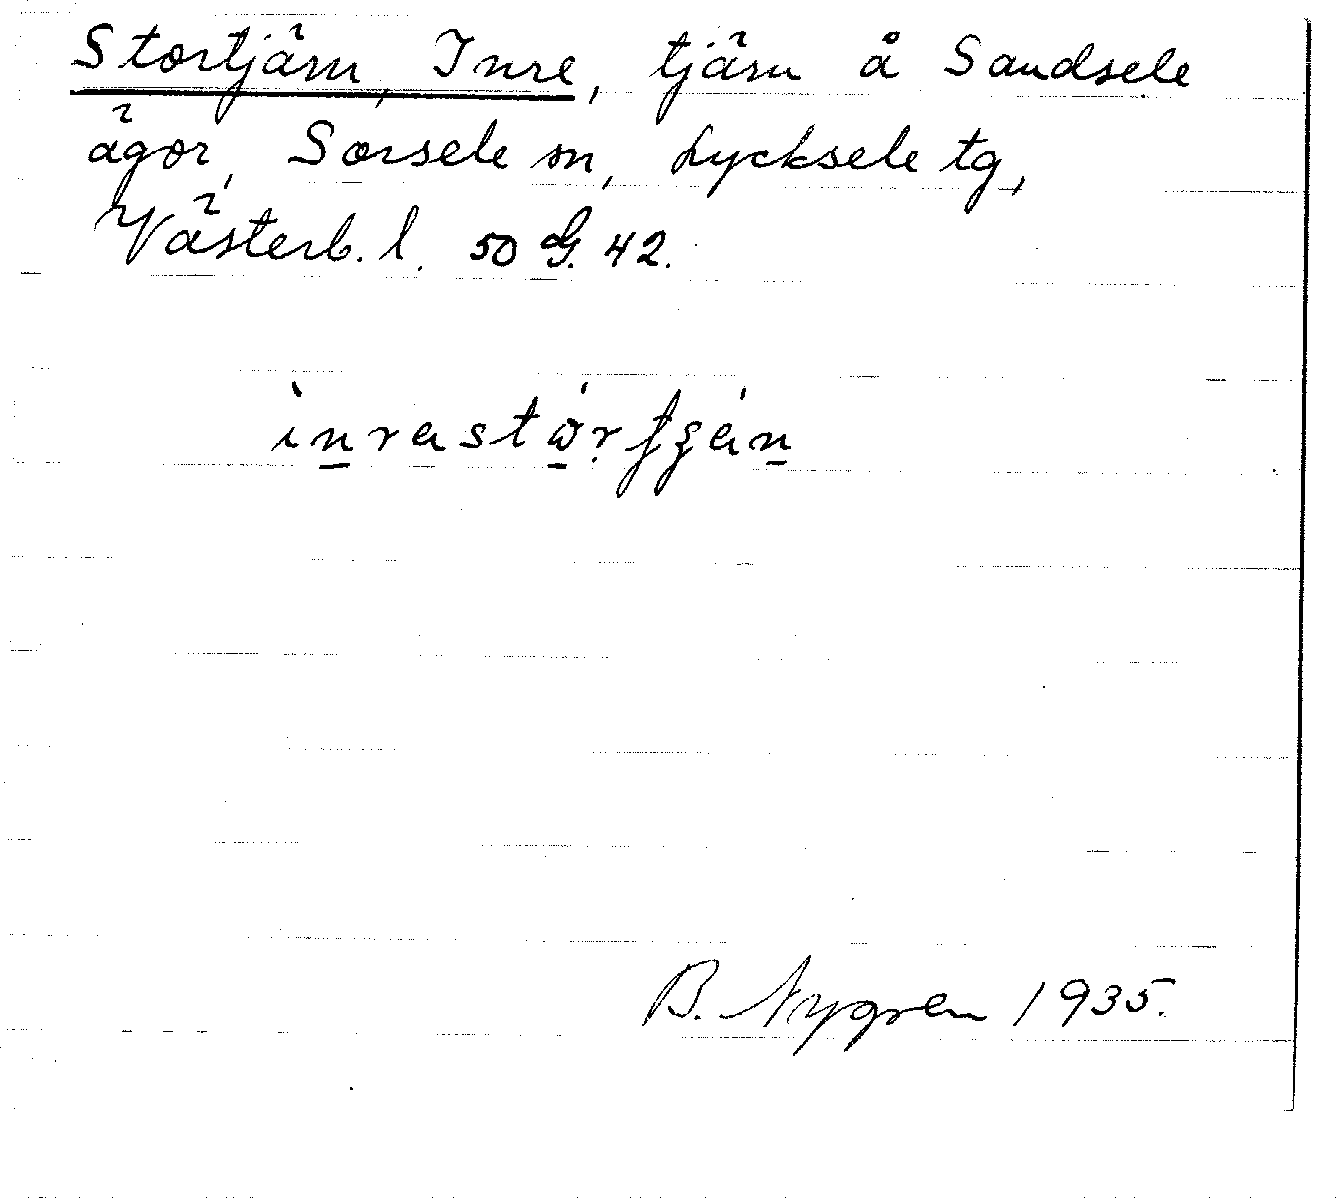 Stortjärn, Inre, tjärn å Sandsele
ägor, Sorsele sn, Lycksele tg,
Västerb. l. 50 G. 42.
B. Nygren 1935.